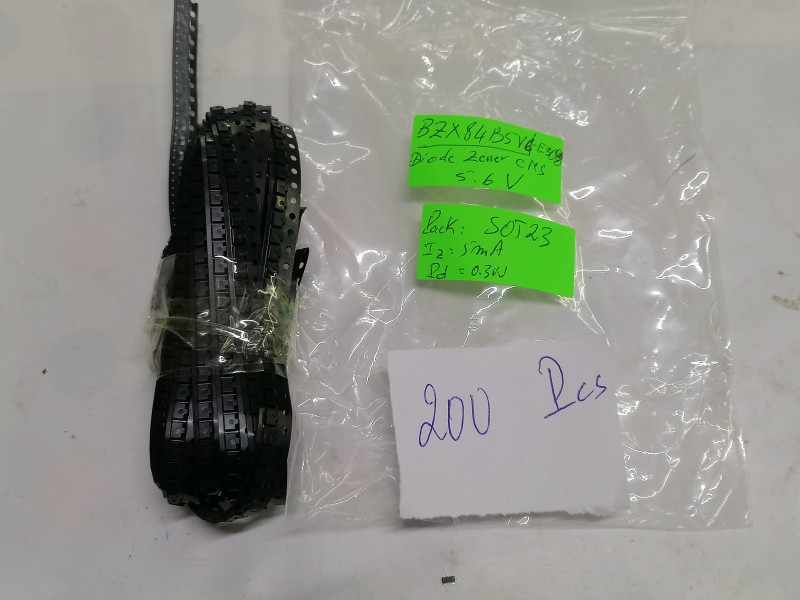 BZX84B5V6-E3-08
Diode Zener CMS
5.6 V
Pack: SOT23
Iz = 5mA
Pd = 0.3W
200 Pcs